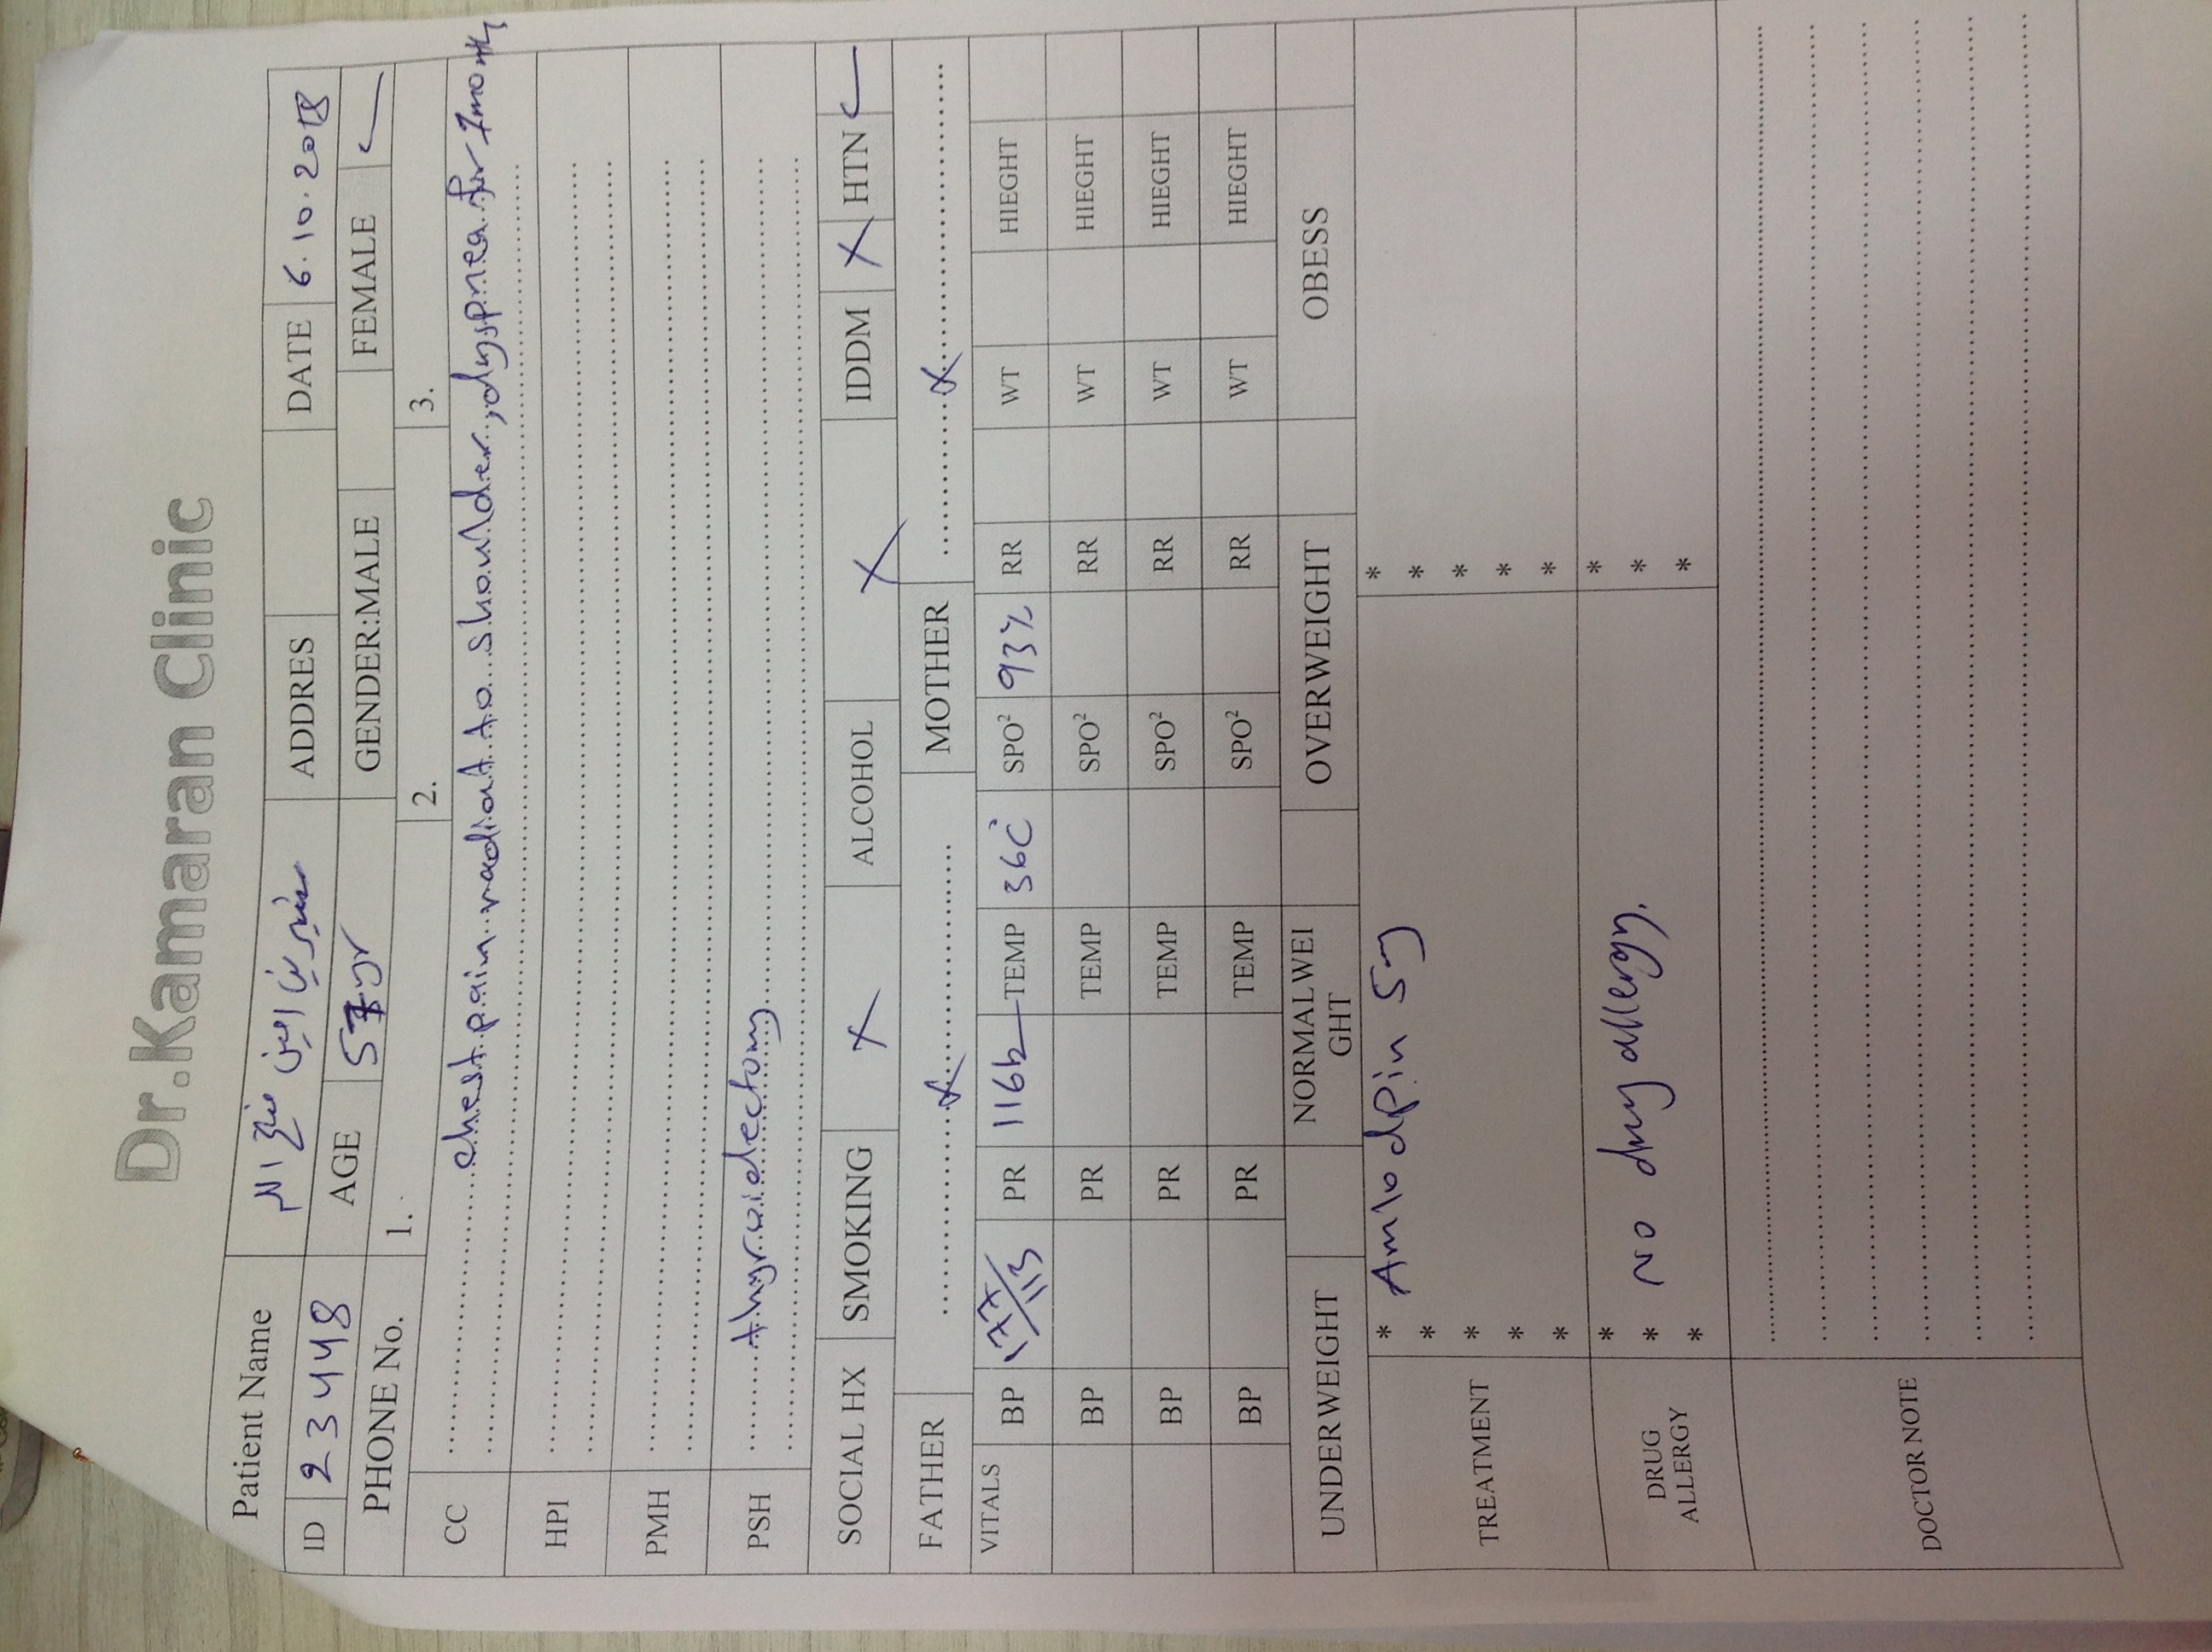 Dr.Kamaran Clinic
Patient Name ADDRES DATE 6.10.2018
ID 23448 AGE 57yr GENDER:MALE FEMALE ✓
PHONE No. 1. 2. 3.
CC chest pain radiat to shoulder, dyspnea for 2month
HPI
PMH
PSH thyroidectomy
SOCIAL HX SMOKING X ALCOHOL X IDDM X HTN ✓
FATHER X MOTHER X
VITALS BP PR 116b TEMP 36C SPO² 93% RR WT HIEGHT
BP PR TEMP SPO² RR WT HIEGHT
BP PR TEMP SPO² RR WT HIEGHT
BP PR TEMP SPO² RR WT HIEGHT
UNDERWEIGHT NORMALWEI OVERWEIGHT OBESS
GHT
TREATMENT * Amlodpin 5mg *
* *
* *
* *
* *
DRUG ALLERGY * *
* No drug allergy. *
* *
DOCTOR NOTE